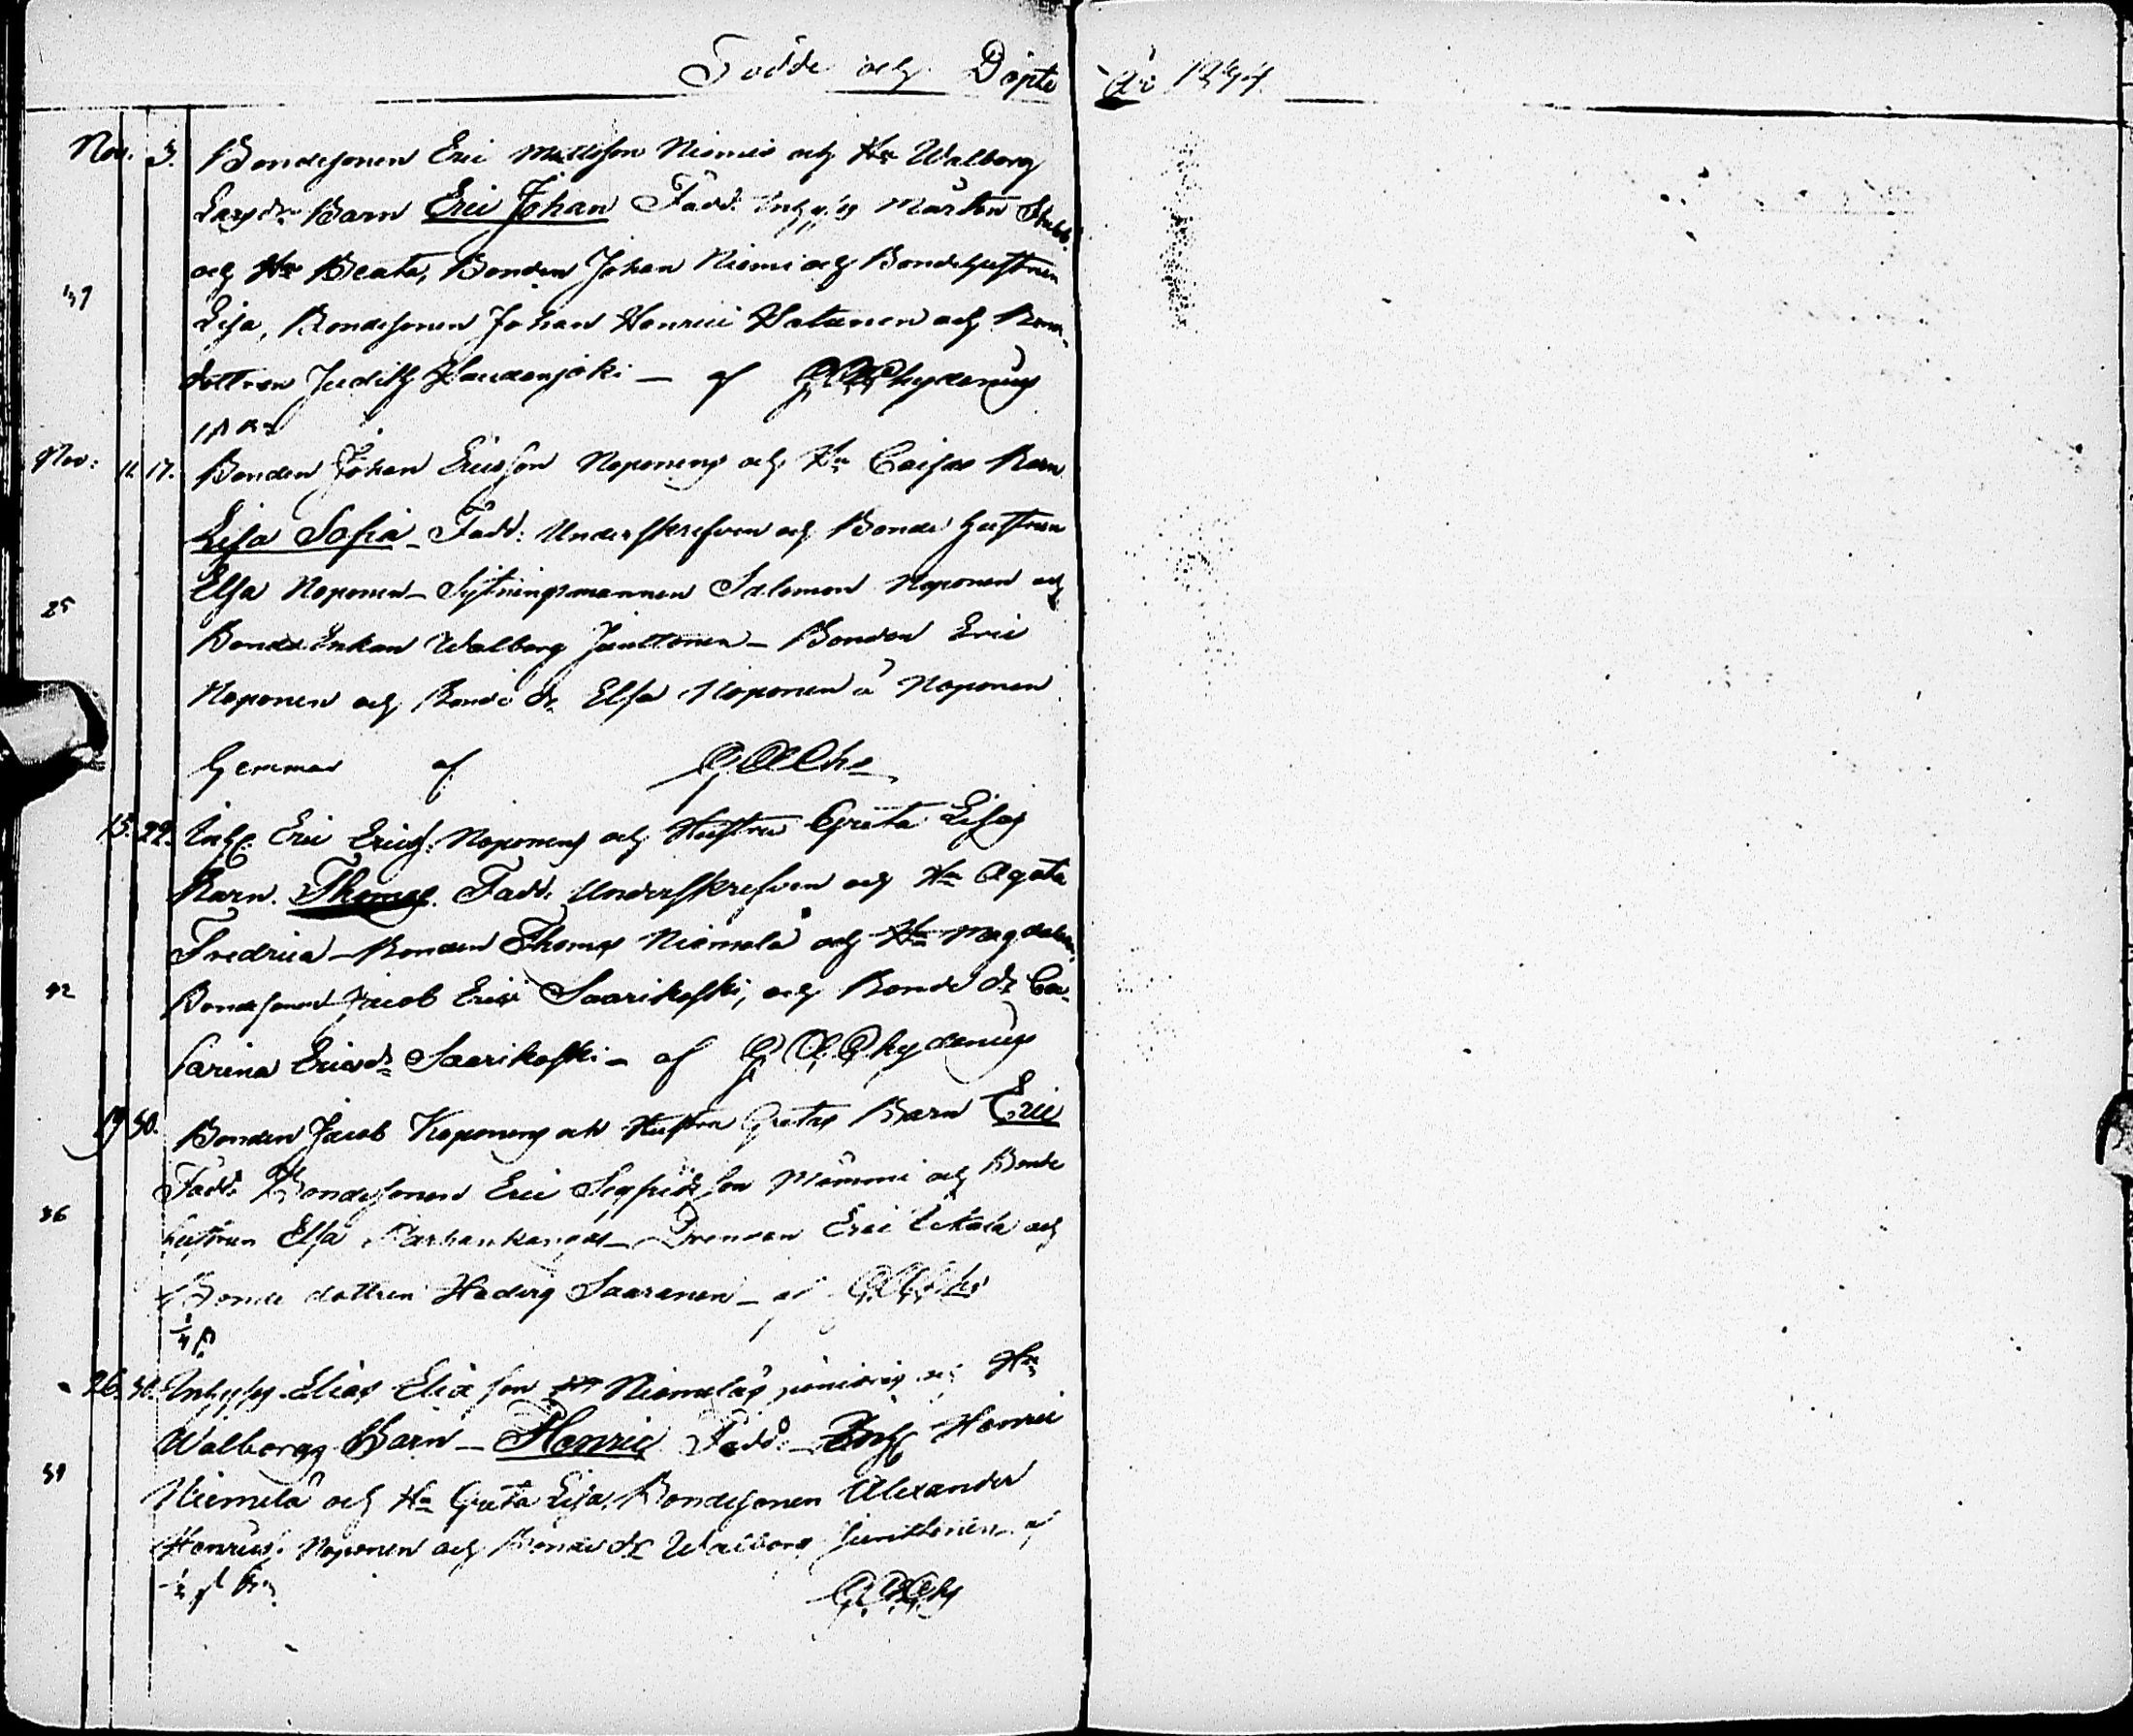 Födde och Döpte År
Nov. 3. Bondesonen Eric Mattsson Niemis och Hu Walborg
Larsdr Barn Eric Johan Fadd. Inhyses Mårten
och Hu Beata, Bonden Johan Niemi och Bondehustrun
Lisa, Bondesonen Johan Henrici och
dottren Judith - af
Nov: 11. 17. Bonden Johan Ericsson Noponens och Hu Caisas Barn
Lisa Sofia - Fadd: Underskrefven och Bonde hustrun
25
Elsa Noponen - Sytningsmannen Salomon Noponen och
Bonde Enkan Walborg Junttonen - Bonden Eric
Noponen och Bonde dr Elsa Noponen å Noponen
Hemman af
15. 22. Inh. Eric Erics: Noponens och Hustru Greta Lisas
Barn. Thomas. Fadd. Underskrefven och Hu Agata
Fredrica - Bonden Thomas Niemelä och Hu Magdalena
42
Bondesonen Jacob Eric Saarikoski, och Bonde dr Ca-
tarina Ericsdr Saarikoski - af
19 30. Bonden Jacob Koponens och Hustru Gretas Barn Eric
Fadd. Bondesonen Eric Sigfridsson Mömmi och Bonde
36
hustrun Elsa - Drengen Eric och
Bonde dottren Hedvig Saaranen - af
26. 30. Inhyses Elias Eliasson Niemeläs och Hu
Walborgs Barn - Henric Fadd. - Inh Henric
Niemelä och Hu Greta Lisa, Bondesonen Alexander
Henrics. Noponen och Bonde dr Walborg Junttonen - af